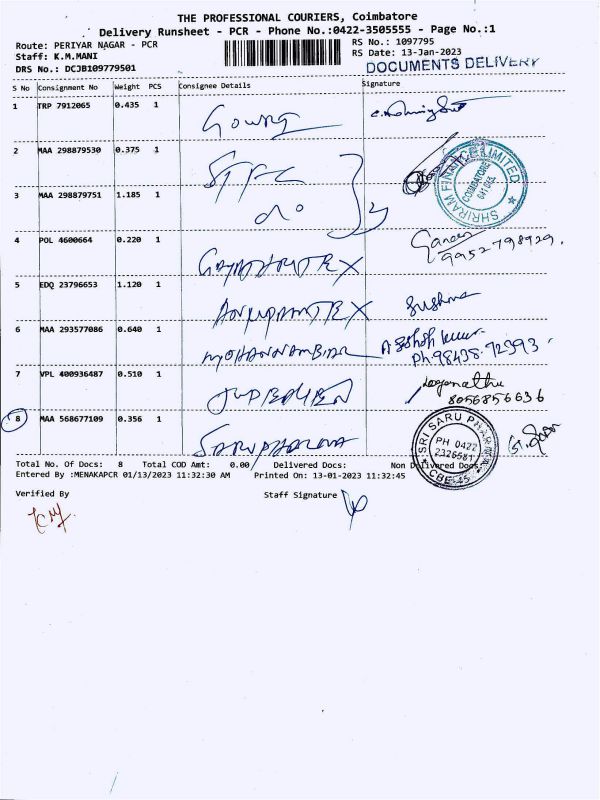 THE PROFESSIONAL COURIERS, Coimbatore
Delivery Runsheet - PCR - Phone No.:0422-3505555 - Page No.:1
Route: PERIYAR NAGAR - PCR
RS No.: 1097795
Staff: K.M.MANI
RS Date: 13-Jan-2023
DRS No.: DCJB109779501
DOCUMENTS DELIVERY
S No Consignment No Weight PCS Consignee Details Signature
1 TRP 7912065 0.435 1
2 MAA 298879530 0.375 1 STFC
SHRIRAM FINANCE LIMITED
COIMBATORE
641 001
3 MAA 298879751 1.185 1 do
4 POL 4600664 0.220 1 Ganesh
9952798929.
5 EDQ 23796653 1.120 1 ANUPAM TEX Sushma
6 MAA 293577086 0.640 1 MOHANNAMBIAR Ashok kumar
Ph. 98438.72393
7 VPL 400936487 0.510 1 Loganathu
8056856636
8 MAA 568677109 0.356 1 SARUPHARMA
SRI SARU PHARMA
PH 0422
2326581
CBE-45
Total No. Of Docs: 8 Total COD Amt: 0.00 Delivered Docs: Non Delivered Docs:
Entered By :MENAKAPCR 01/13/2023 11:32:30 AM Printed On: 13-01-2023 11:32:45
Verified By Staff Signature